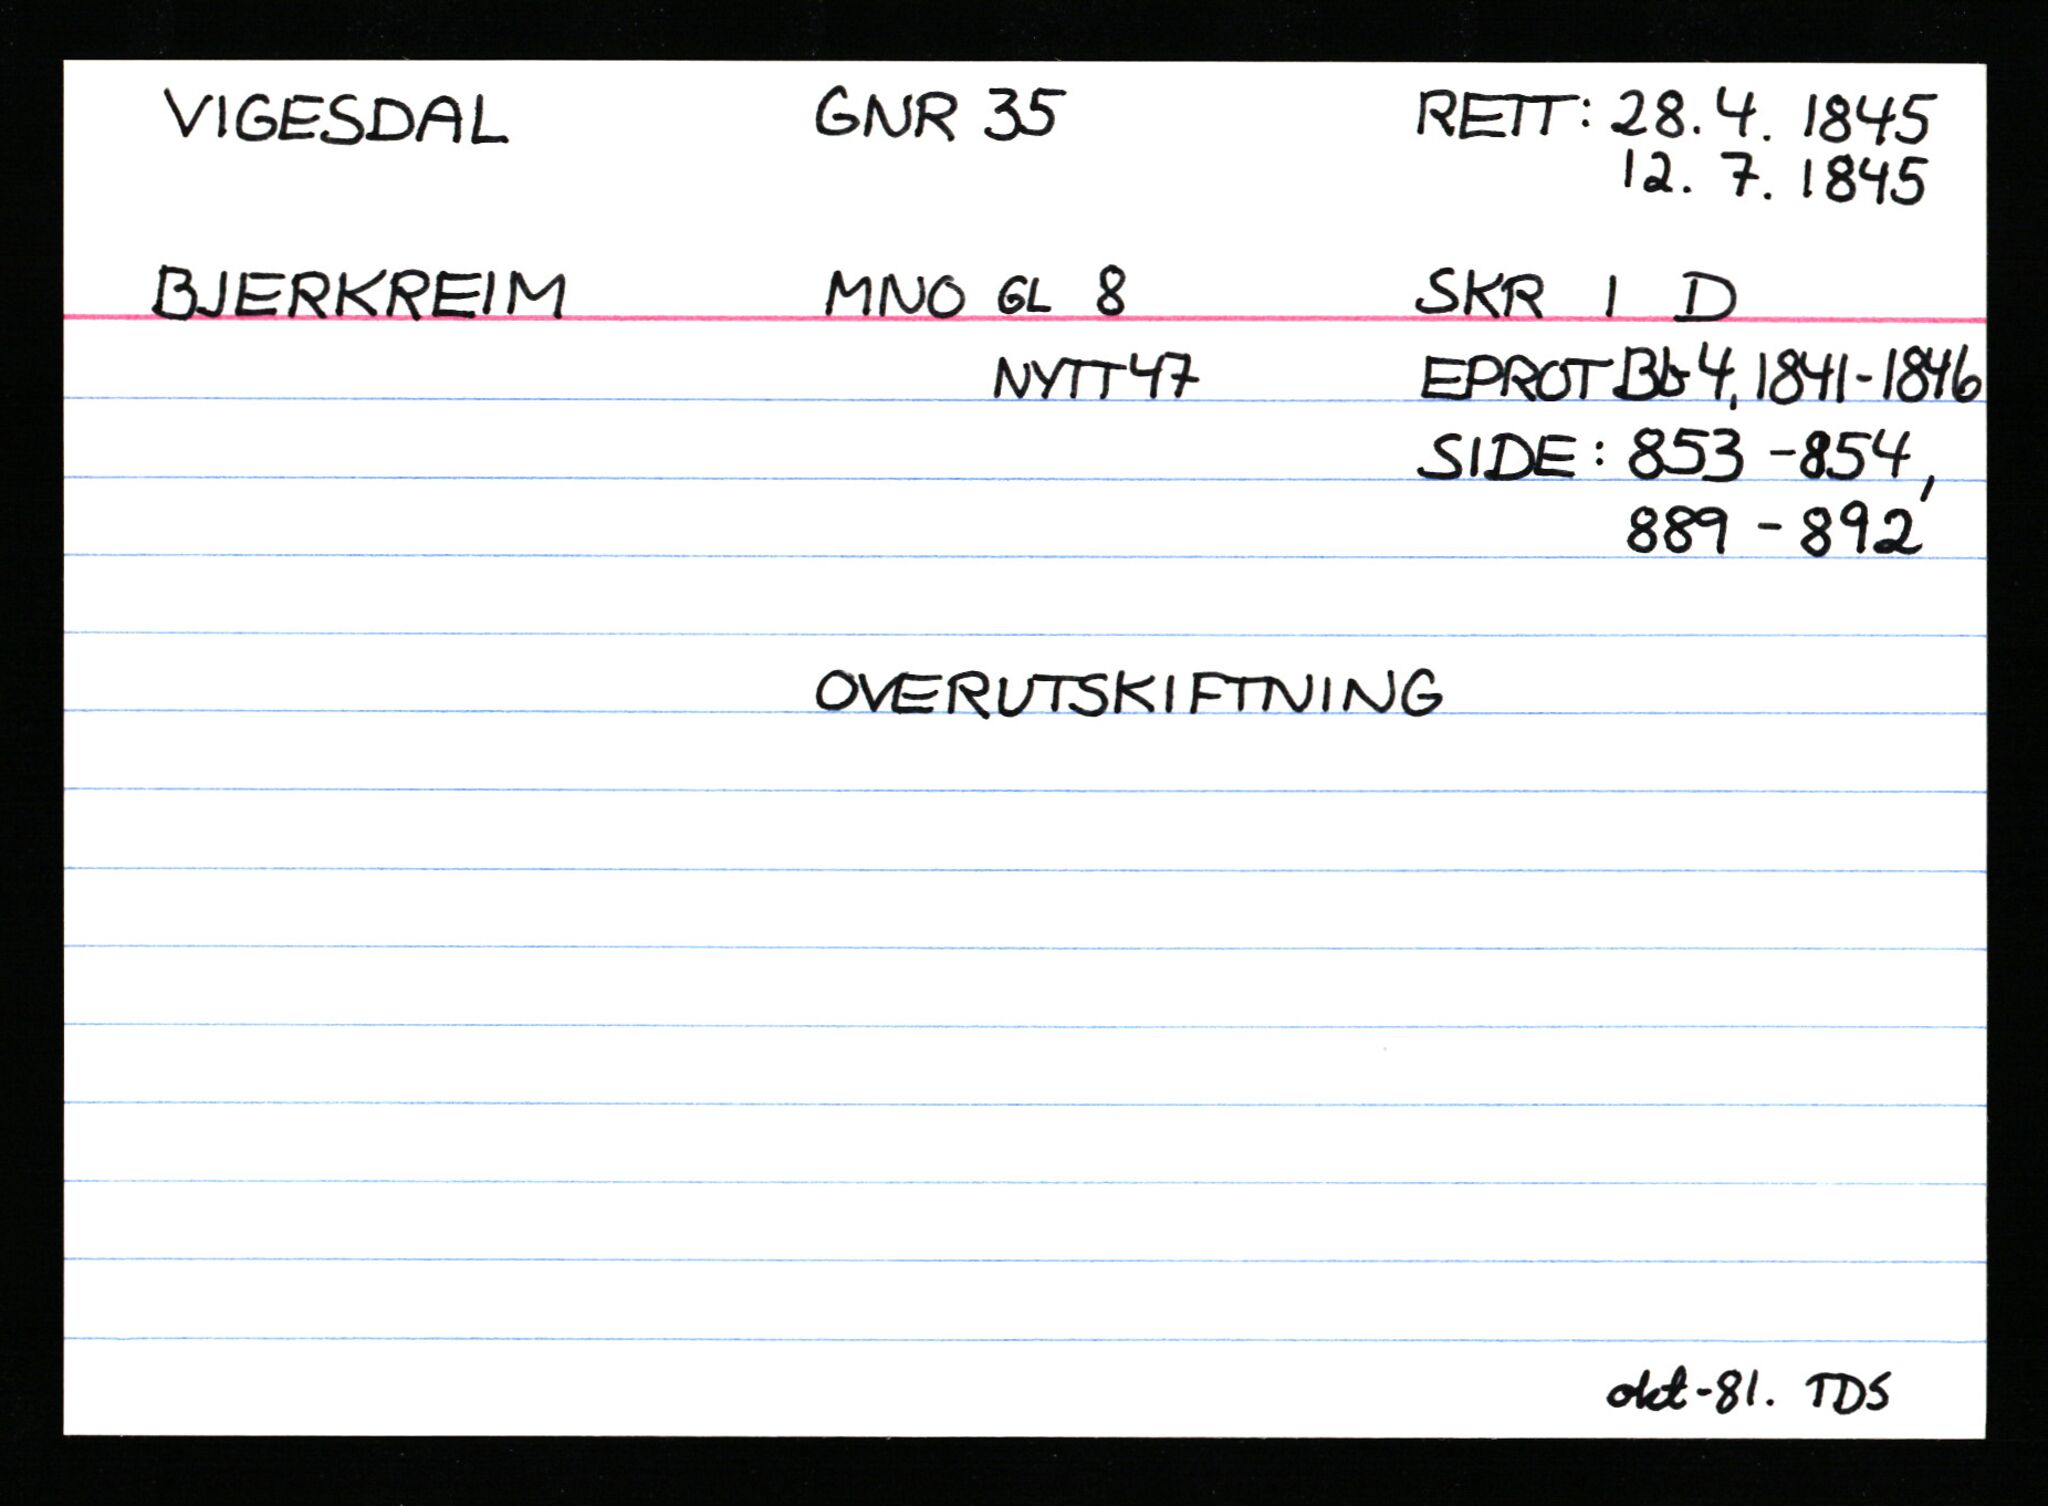 VIGESDAL GNR 35 RETT: 28.4. 1845
12. 7. 1845
BJERKREIM MNO GL 8 SKR 1 D
NYTT 47 EPROT Bb 4, 1841-1846
SIDE: 853 - 854,
889 - 892
OVERUTSKIFTNING
okt-81. TDS